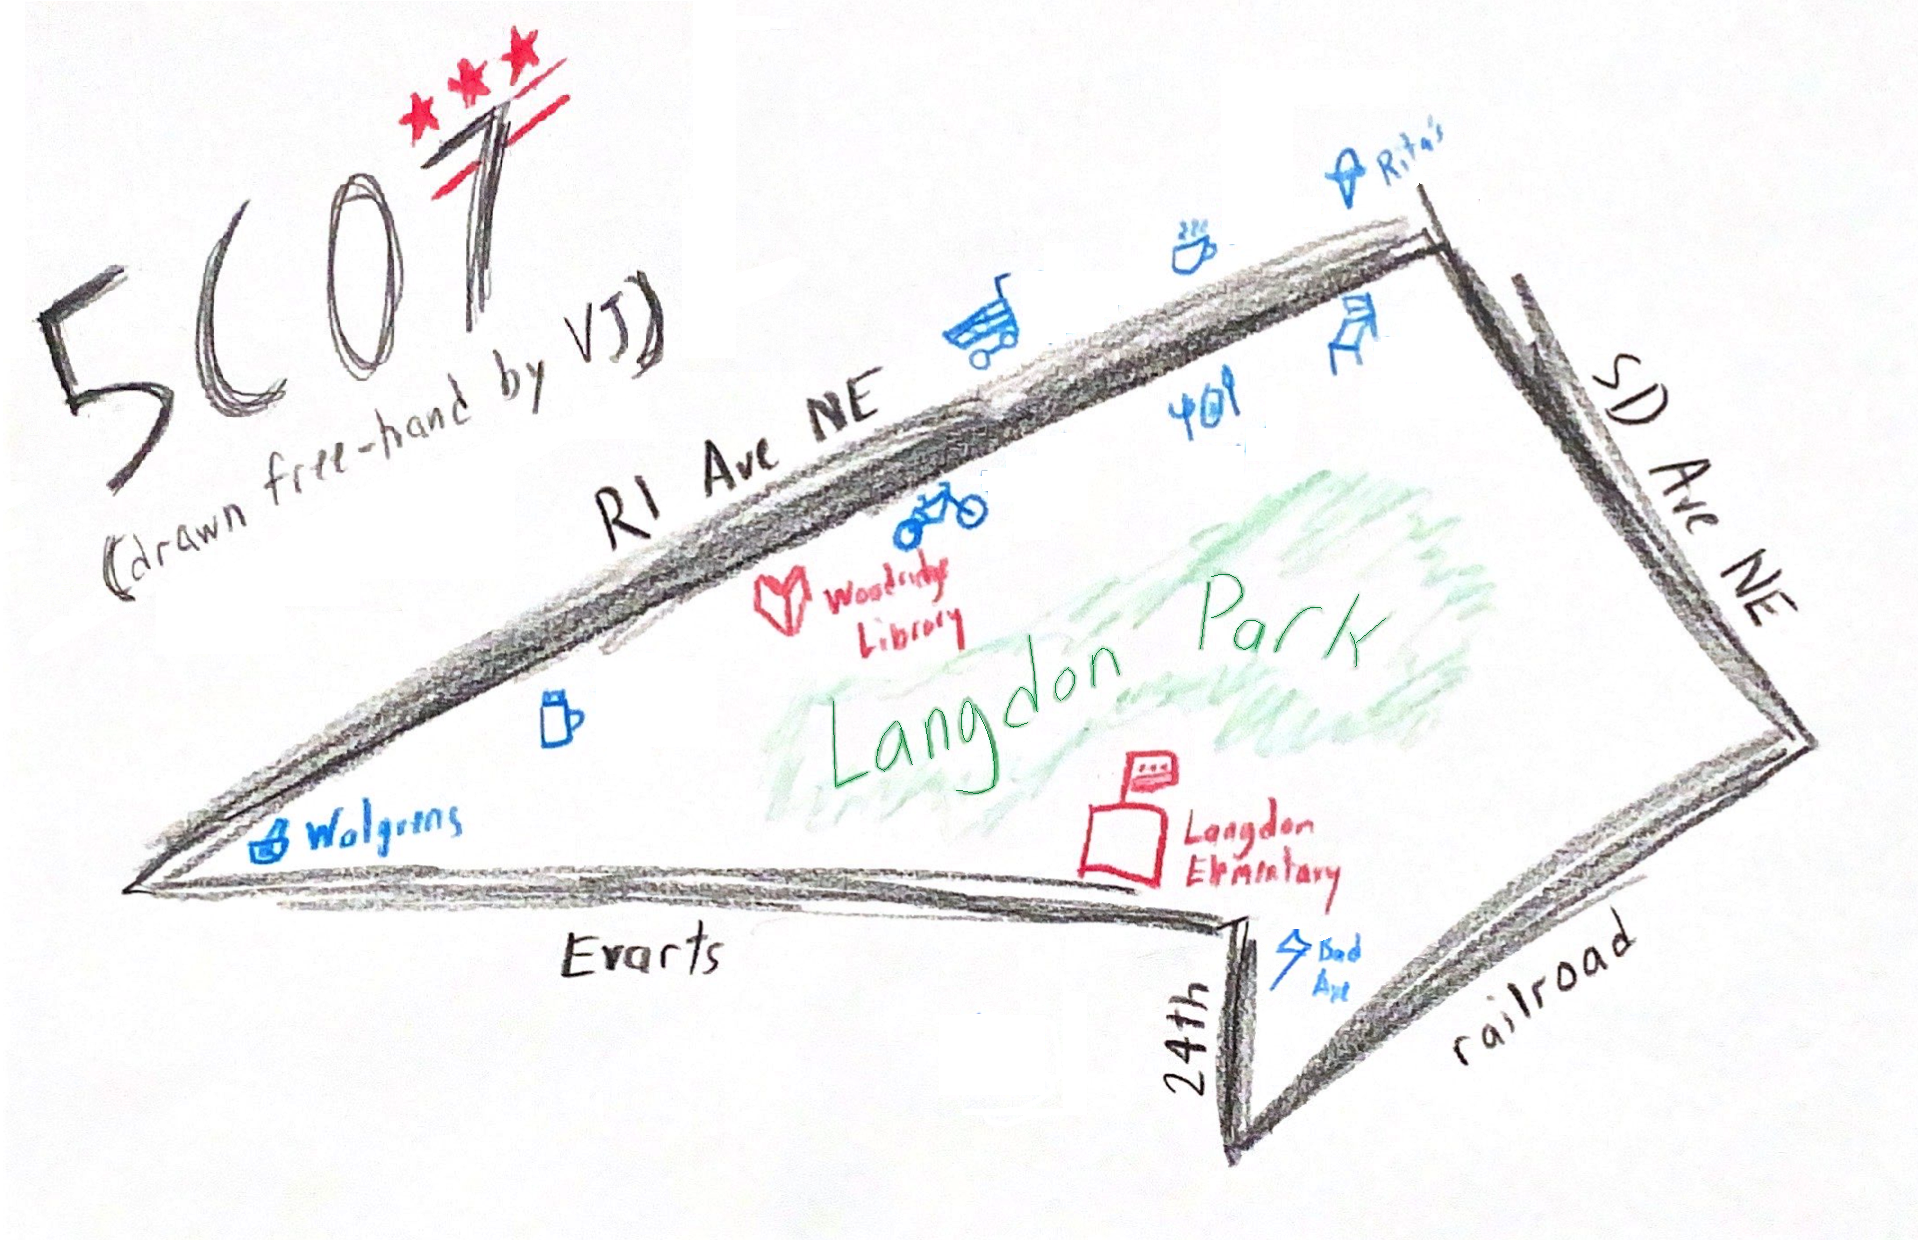 5C07
(drawn free-hand by VJ)
Rita's
RI Ave NE
SD Ave NE
Woodridge
Library
Langdon Park
Walgreens
Langdon
Elementary
Evarts
Bad
Axe
24th
railroad